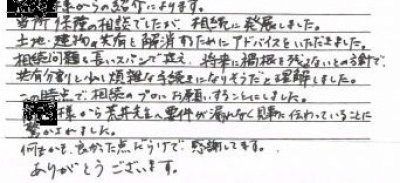 様からの紹介によります。
当所、保険の相談でしたが、相続に発展しました。
土地・建物の共有を解消するためにアドバイスをいただきました。
相続問題を長いスパンで捉え、将来に禍根を残さないとの方針で、
共有分割という煩雑な手続きになりそうだと理解しました。
この時点で、相続のプロにお願いすることにしました。
様から荒井先生へ要件が漏れなく見事に伝わっていることに
驚かされました。
何もかも、良かった点だらけで、感謝してます。
ありがとうございます。